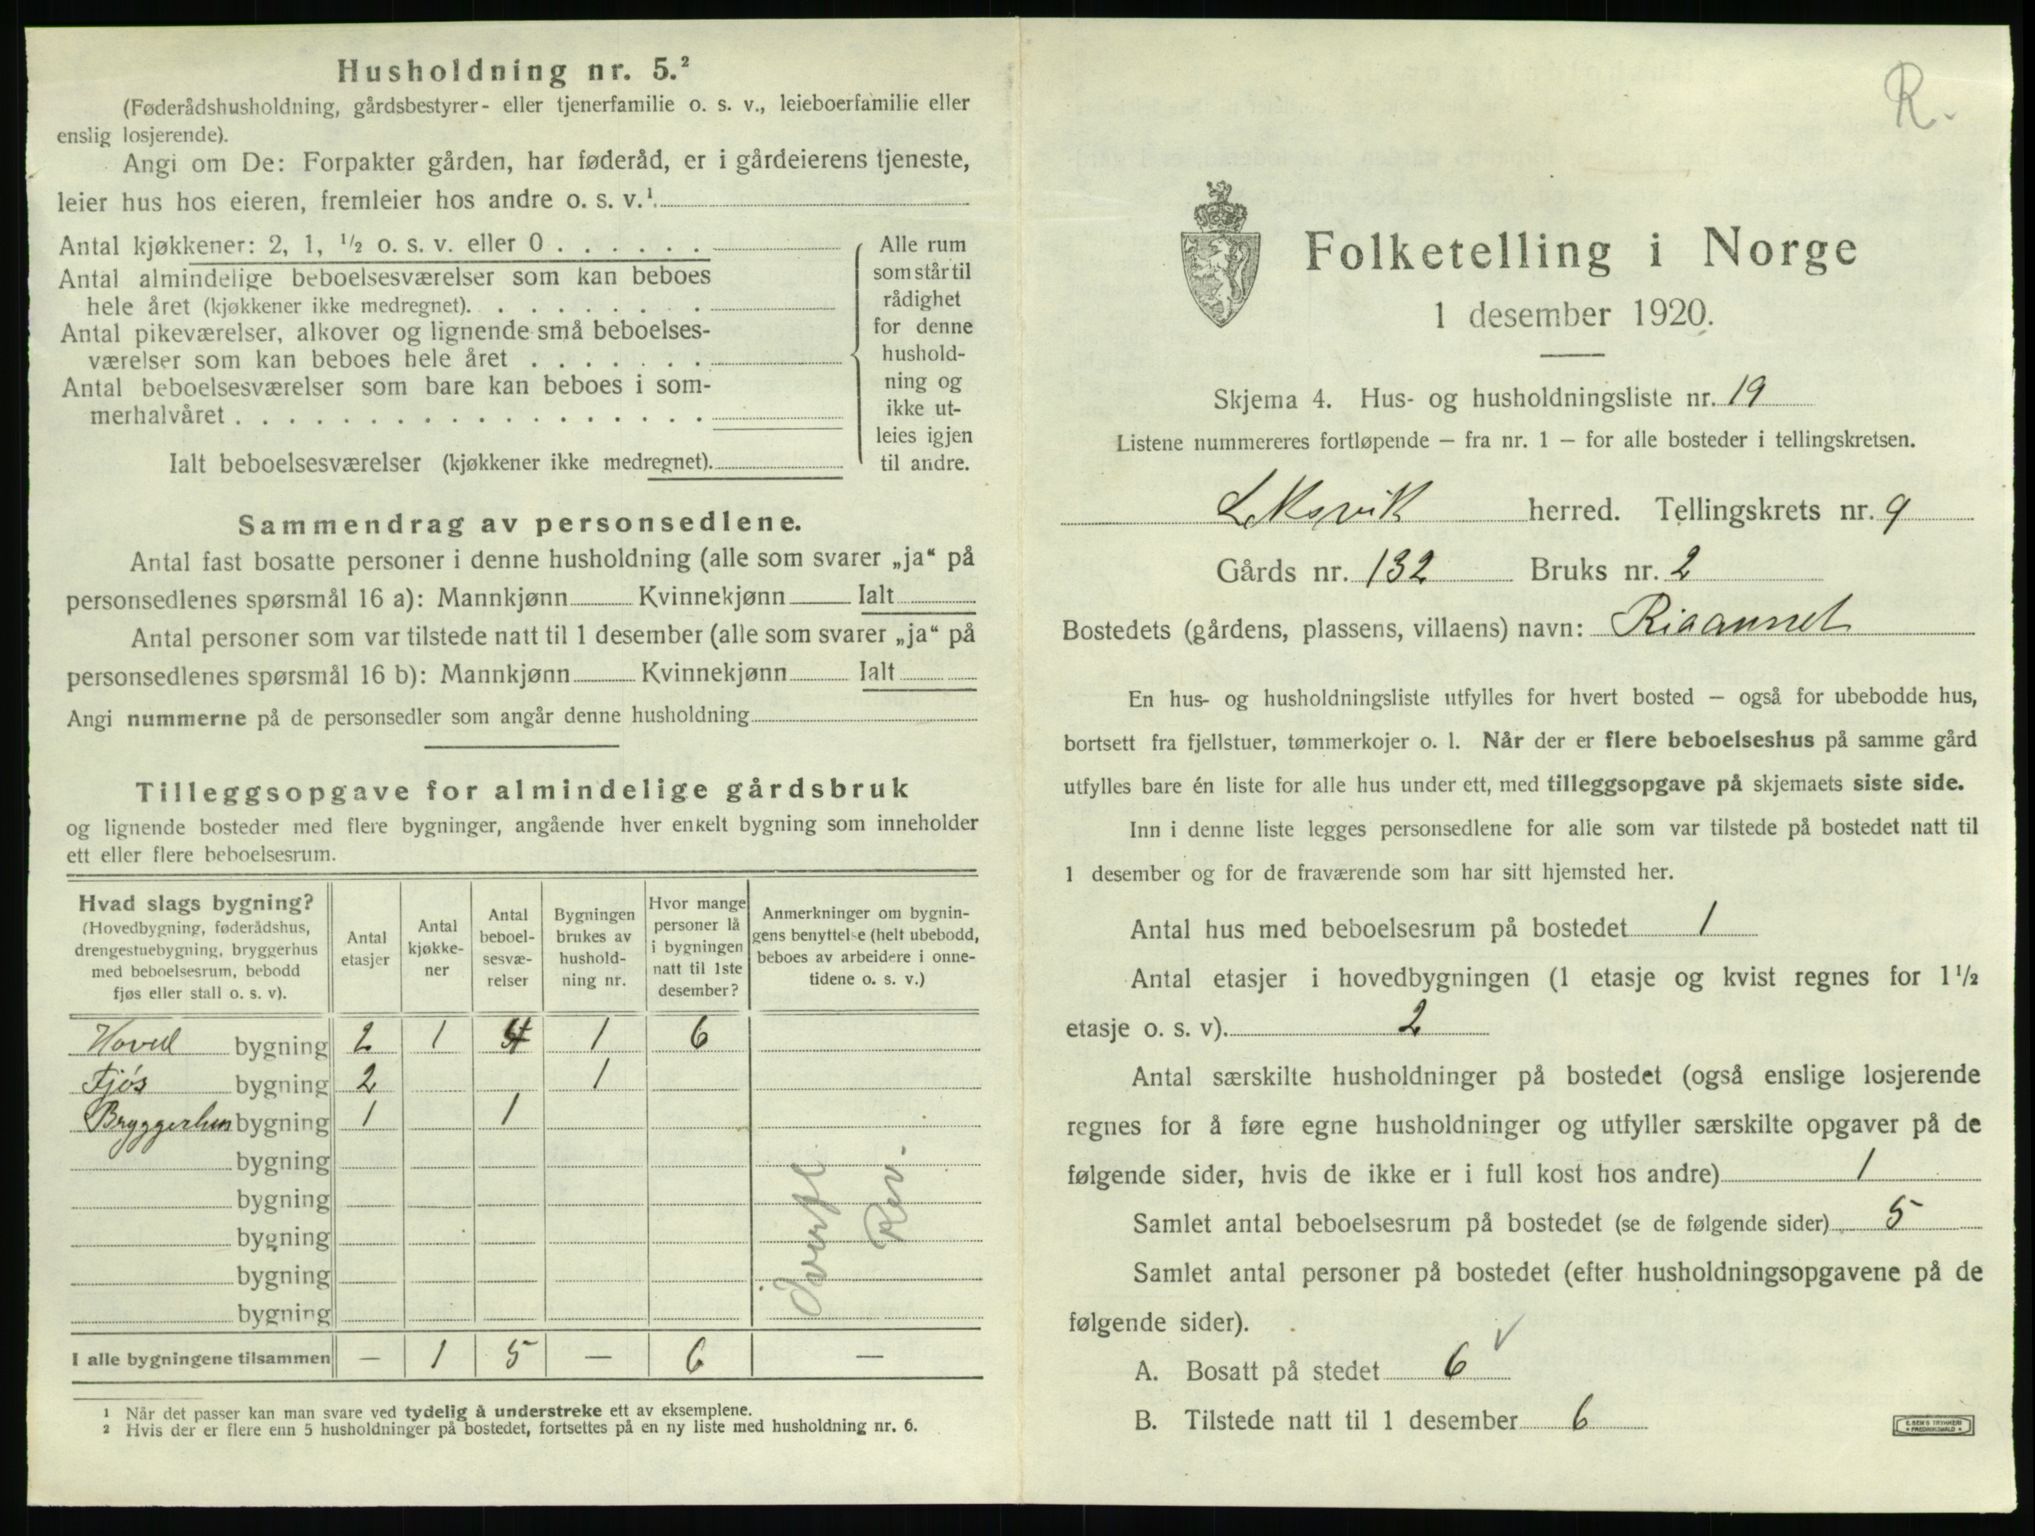 Husholdning nr. 5.²
(Føderådshusholdning, gårdsbestyrer- eller tjenerfamilie o. s. v., leieboerfamilie eller
enslig losjerende).
Angi om De: Forpakter gården, har føderåd, er i gårdeierens tjeneste,
leier hus hos eieren, fremleier hos andre o. s. v.¹
Antal kjøkkener: 2, 1, ½ o. s. v. eller 0 . . . . . .
Antal almindelige beboelsesværelser som kan beboes
hele året (kjøkkener ikke medregnet). . . . . . . . .
Antal pikeværelser, alkover og lignende små beboelses-
værelser som kan beboes hele året . . . . . . .
Antal beboelsesværelser som bare kan beboes i som-
merhalvåret . . . . . . . . . . . . . . . . . .
Ialt beboelsesværelser (kjøkkener ikke medregnet).
Alle rum
som står til
rådighet
for denne
hushold-
ning og
ikke ut-
leies igjen
til andre.
Sammendrag av personsedlene.
Antal fast bosatte personer i denne husholdning (alle som svarer „ja“ på
personsedlenes spørsmål 16 a): Mannkjønn Kvinnekjønn Ialt
Antal personer som var tilstede natt til 1 desember (alle som svarer „ja“ på
personsedlenes spørsmål 16 b): Mannkjønn Kvinnekjønn Ialt
Angi nummerne på de personsedler som angår denne husholdning
Tilleggsopgave for almindelige gårdsbruk
og lignende bosteder med flere bygninger, angående hver enkelt bygning som inneholder
ett eller flere beboelsesrum.
Hvad slags bygning?
(Hovedbygning, føderådshus,
drengestuebygning, bryggerhus
med beboelsesrum, bebodd
fjøs eller stall o. s. v).
Antal
etasjer
Antal
kjøkke-
ner
Antal
beboel-
sesvæ-
relser
Bygningen
brukes av
hushold-
ning nr.
Hvor mange
personer lå
i bygningen
natt til 1ste
desember?
Anmerkninger om bygnin-
gens benyttelse (helt ubebodd,
beboes av arbeidere i onne-
tidene o. s. v.)
Hoved bygning 2 1 4 1 6
Fjøs bygning 2 1
Bryggerhus bygning 1 1
bygning
bygning
bygning
bygning
bygning
Overf.
Rev.
I alle bygningene tilsammen — 1 5 — 6 —
¹ Når det passer kan man svare ved tydelig å understreke ett av eksemplene.
² Hvis der er flere enn 5 husholdninger på bostedet, fortsettes på en ny liste med husholdning nr. 6.
R.
Folketelling i Norge
1 desember 1920.
Skjema 4. Hus- og husholdningsliste nr. 19
Listene nummereres fortløpende — fra nr. 1 — for alle bosteder i tellingskretsen.
Leksvik herred. Tellingskrets nr. 9
Gårds nr. 132 Bruks nr. 2
Bostedets (gårdens, plassens, villaens) navn:
En hus- og husholdningsliste utfylles for hvert bosted — også for ubebodde hus,
bortsett fra fjellstuer, tømmerkojer o. l. Når der er flere beboelseshus på samme gård
utfylles bare én liste for alle hus under ett, med tilleggsopgave på skjemaets siste side.
Inn i denne liste legges personsedlene for alle som var tilstede på bostedet natt til
1 desember og for de fraværende som har sitt hjemsted her.
Antal hus med beboelsesrum på bostedet 1
Antal etasjer i hovedbygningen (1 etasje og kvist regnes for 1½
etasje o. s. v). 2
Antal særskilte husholdninger på bostedet (også enslige losjerende
regnes for å føre egne husholdninger og utfyller særskilte opgaver på de
følgende sider, hvis de ikke er i full kost hos andre) 1
Samlet antal beboelsesrum på bostedet (se de følgende sider) 5
Samlet antal personer på bostedet (efter husholdningsopgavene på de
følgende sider).
A. Bosatt på stedet 6 ✓
B. Tilstede natt til 1 desember 6